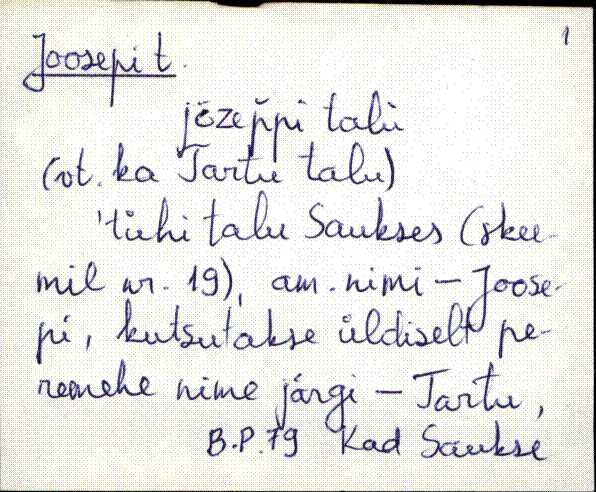 1
Joosepi t.
jōzep̆pi talù
(vt. ka Tartu talu)
'tühi talu Saukses (skee-
mil nr. 19), am. nimi – Joose-
pi, kutsutakse üldiselt pe-
remehe nime järgi – Tartu,
B.P. 79 Kad Saukse